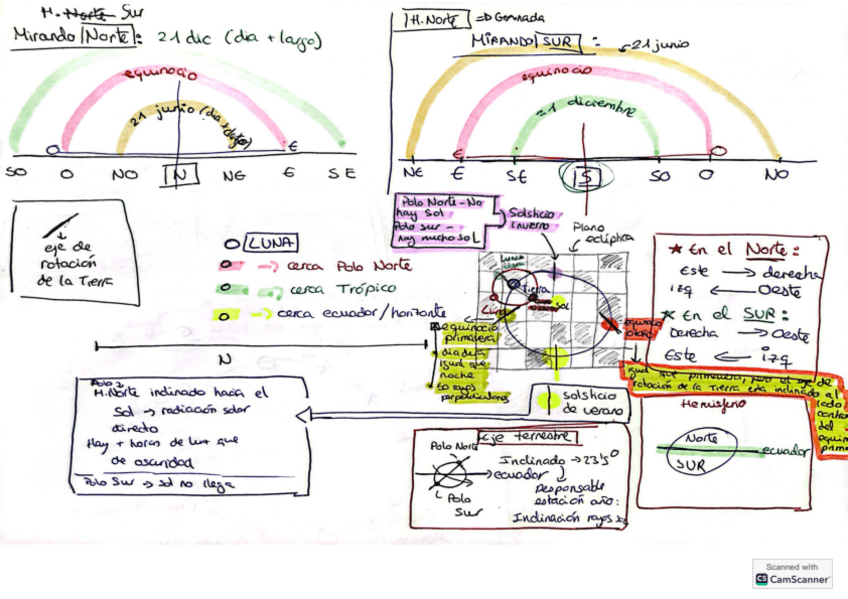 H. Norte Sur
Mirando Norte: 21 dic (dia + largo)
equinocio
21 junio (dia + corto)
O
E
SO O NO N NE E SE
H. Norte => Granada
MIRANDO SUR :
21 junio
equinocio
21 diciembre
E
O
NE E SE S SO O NO
eje de
rotación
de la Tierra
LUNA
cerca Polo Norte
cerca Trópico
cerca ecuador/horizonte
N
Polo Norte - No
hay sol
Polo sur -
hay mucho sol
Solsticio
invierno
Plano
eclíptica
LUNA
Tierra
sol
Luna
equinocio
primavera
dia dura
igual que
noche
so rayos
perpendiculares
equinocio
otoño
igual que primavera, pero el eje de
rotación de la Tierra esta inclinado al
lado
contra
del
equin
prima
solsticio
de verano
★ En el Norte:
Este → derecha
izq ← Oeste
★ En el SUR:
Derecha → Oeste
Este ← izq
Polo
H. Norte inclinado hacia el
Sol → radiación solar
directo
Hay + horas de luz que
de oscuridad
Polo Sur → sol no llega
Eje terrestre
Polo Norte
ecuador
Polo
Sur
Inclinado → 23'5°
Responsable
estación año:
Inclinación rayos
Hemisferio
Norte
SUR
ecuador
Scanned with
CS CamScanner